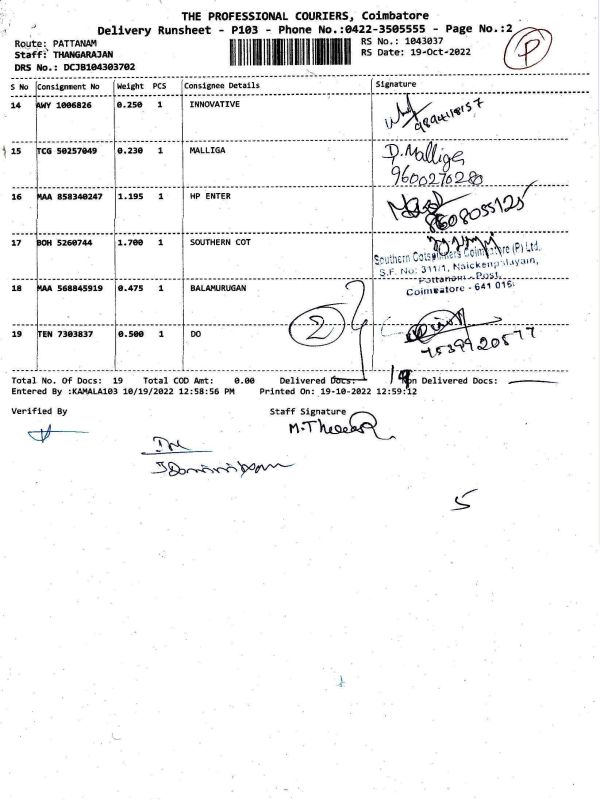 THE PROFESSIONAL COURIERS, Coimbatore
Delivery Runsheet - P103 - Phone No.:0422-3505555 - Page No.:2
Route: PATTANAM
RS No.: 1043037
Staff: THANGARAJAN
RS Date: 19-Oct-2022
DRS No.: DCJB104303702
P
S No Consignment No Weight PCS Consignee Details Signature
14 AWY 1006826 0.250 1 INNOVATIVE
9894118157
15 TCG 50257049 0.230 1 MALLIGA D.Malliga
9600276280
16 MAA 858340247 1.195 1 HP ENTER
8608055125
17 BOH 5260744 1.700 1 SOUTHERN COT
Southern Cotspinners Coimbatore (P) Ltd.
S.F. No: 311/1, Naickenpalayam,
Pattanam - Post,
Coimbatore - 641 016
18 MAA 568845919 0.475 1 BALAMURUGAN
2
19 TEN 7303837 0.500 1 DO
7539920577
Total No. Of Docs: 19 Total COD Amt: 0.00 Delivered Docs: 19 Non Delivered Docs:
Entered By :KAMALA103 10/19/2022 12:58:56 PM Printed On: 19-10-2022 12:59:12
Verified By Staff Signature
5